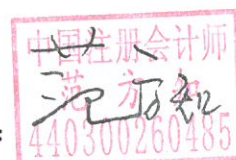 中国注册会计师
范方
440300260485